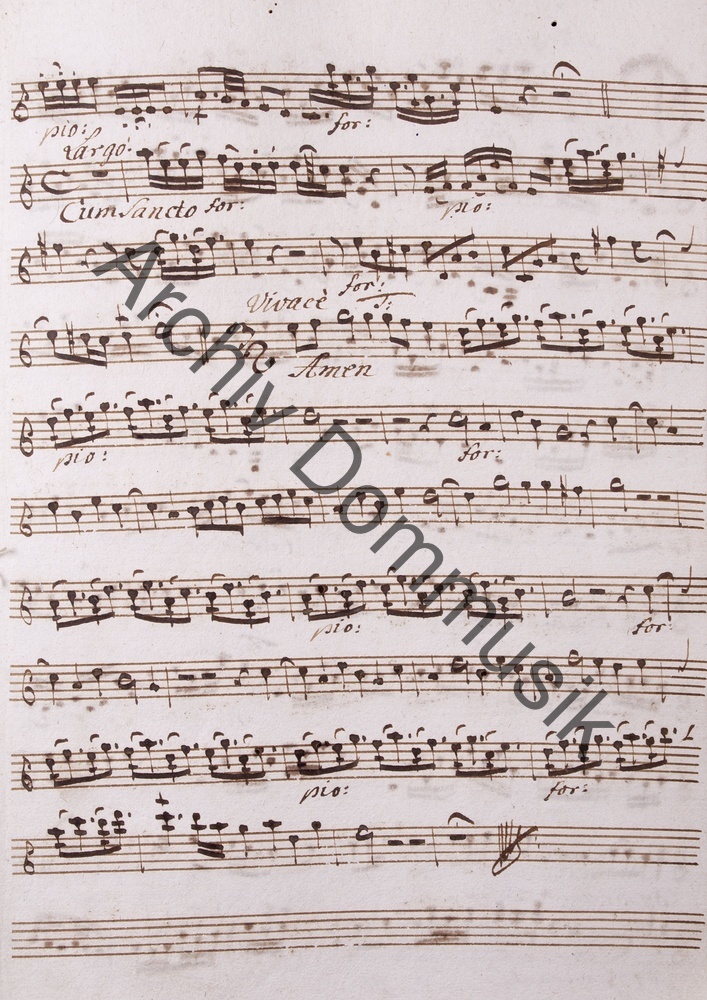 pio: for:
Largo.
Cum Sancto for: pio:
Vivace for:
Amen
pio: for:
pio: for:
pio: for:
Archiv Dommusik